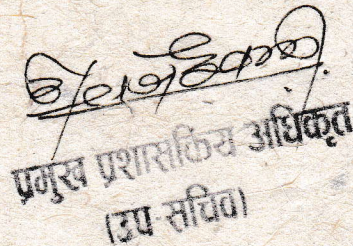 प्रमुख प्रशासकिय अधिकृत
(उप-सचिव)